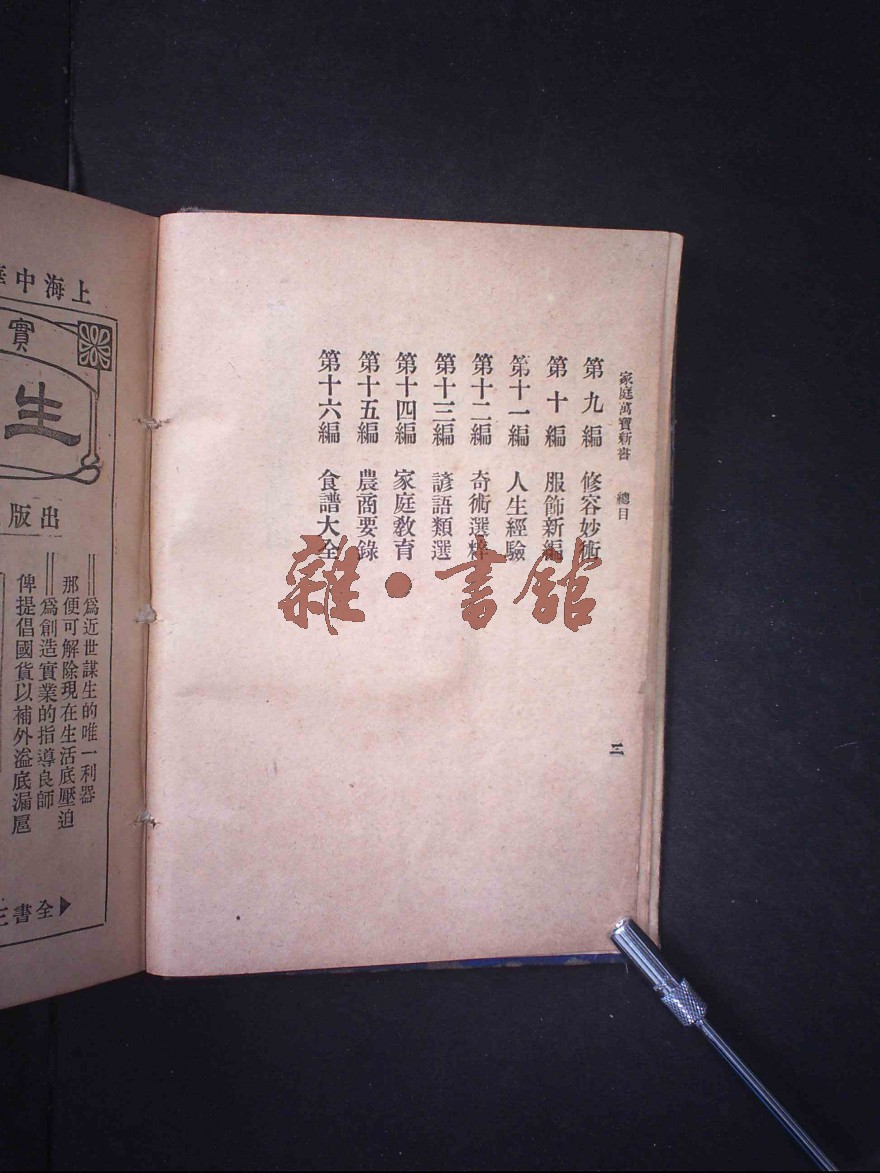 家庭萬寶新書　總目
第九編　修容妙術
第十編　服飾新編
第十一編　人生經驗
第十二編　奇術選粹
第十三編　諺語類選
第十四編　家庭教育
第十五編　農商要錄
第十六編　食譜大全
二
雜·書館
上海中華
實
生
出版
爲近世謀生的唯一利器
那便可解除現在生活底壓迫
爲創造實業的指導良師
俾提倡國貨以補外溢底漏巵
全書